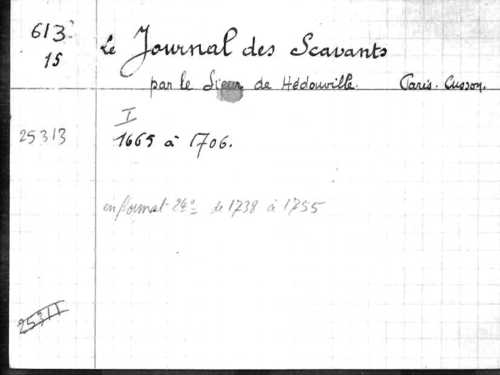 613
15
Le Journal des Scavants
par le Sieur de Hédouville. Paris. Cusson.
I
25313
1665 à 1706.
en format 24º de 1738 à 1755